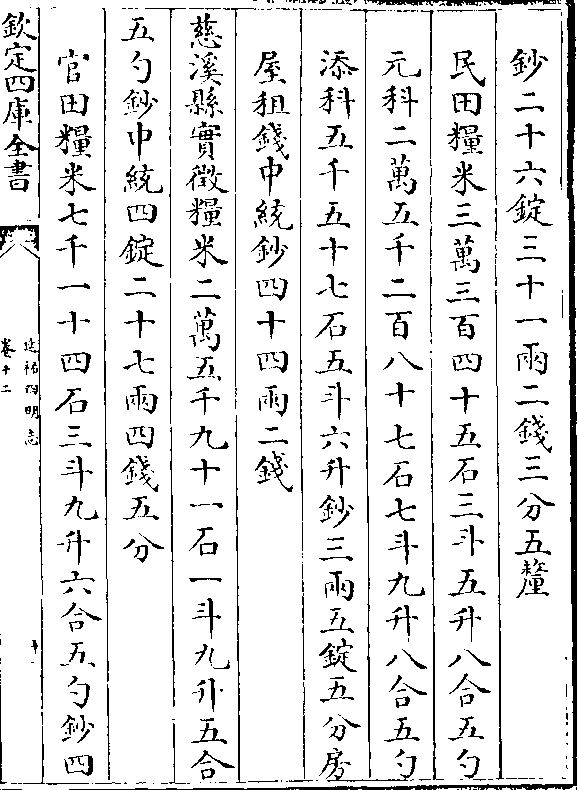 鈔二十六錠三十一兩二錢三分五釐
民田糧米三萬三百四十五石三斗五升八合五勺
元科二萬五千二百八十七石七斗九升八合五勺
添科五千五十七石五斗六升鈔三兩五錠五分房
屋租錢中統鈔四十四兩二錢
慈溪縣實徵糧米二萬五千九十一石一斗九升五合
五勺鈔中統四錠二十七兩四錢五分
官田糧米七千一十四石三斗九升六合五勺鈔四
欽定四庫全書
延祐四明志
卷十二